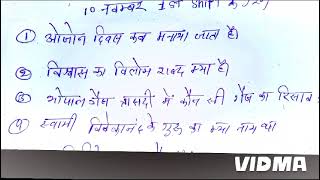 10 नवम्बर 1st Shift
① ओजोन दिवस कब मनाया जाता है।
② विश्वास का विलोम शब्द क्या है।
③ भोपाल गैस त्रासदी में कौन सी गैस का रिसाव
④ स्वामी विवेकानंद के गुरु का क्या नाम था
VIDMA